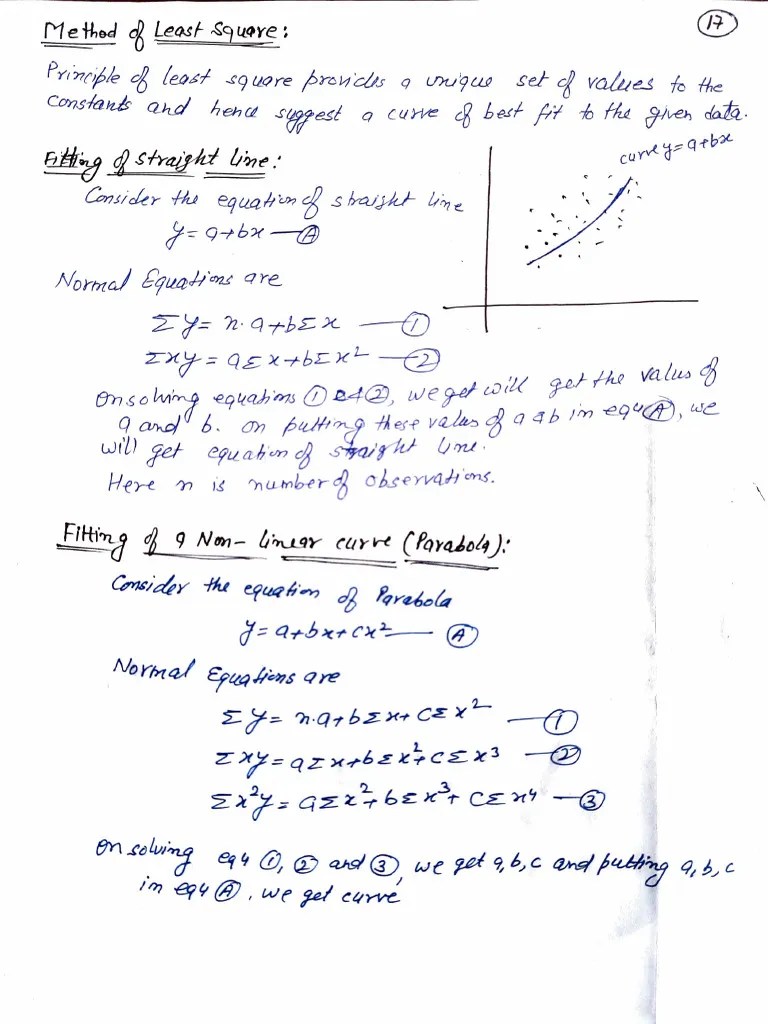 17
Method of Least Square:
Principle of least square provides a unique set of values to the
constants and hence suggest a curve of best fit to the given data.
Fitting of straight line:
curve y=a+bx
Consider the equation of straight line
y=a+bx — Ⓐ
Normal Equations are
Σy= n.a+bΣx — ①
Σxy = aΣx+bΣx² — ②
On solving equations ① & ②, we get will get the value of
a and b. on putting these values of a & b in equ Ⓐ, we
will get equation of straight line.
Here n is number of observations.
Fitting of a Non-linear curve (Parabola):
Consider the equation of Parabola
y=a+bx+cx² — Ⓐ
Normal Equations are
Σy= n.a+bΣx+cΣx² — ①
Σxy=aΣx+bΣx²+cΣx³ — ②
Σx²y=aΣx²+bΣx³+cΣx⁴ — ③
On solving equ ①, ② and ③, we get a,b,c and putting a,b,c
in equ Ⓐ, we get curve